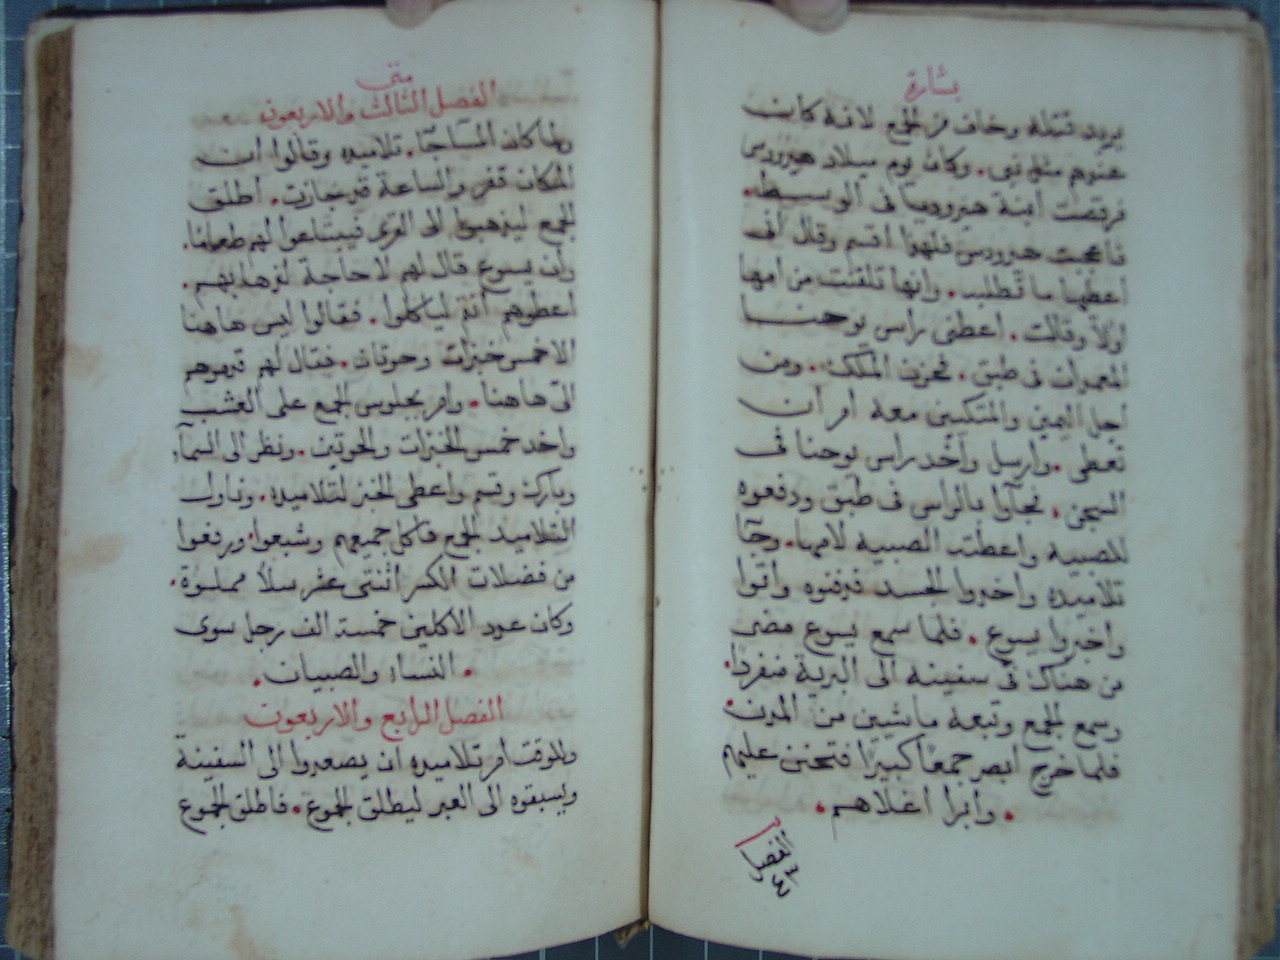 بشارة
يريد قتله وخاف من الجمع لانه كانت
عندهم مثل نبي. وكان يوم ميلاد هيرودس
فرقصت ابنة هيروديا في الوسط.
فاعجبت هيرودس فلهذا اقسم وقال انى
اعطيها ما تطلب. وانها تلقنت من امها
اولاً وقالت. اعطنى راس يوحنا
المعمدان فى طبق. فحزن الملك. ومن
اجل اليمين والمتكيين معه امر ان
تعطى. وارسل واخد راس يوحنا فى
السجن. فجآوا بالراس فى طبق ودفعوه
للصبيه واعطت الصبيه لامها. وجآ
تلاميده واخدوا الجسد فدفنوه واتوا
واخبروا يسوع. فلما سمع يسوع مضى
من هناك فى سفينه الى البرية منفردا.
وسمع الجمع وتبعه ماشيين من المدن.
فلما خرج ابصر جمعاً كبيرًا فتحنن عليهم
. وابرا اعلاهم.
متى
الفصل الثالث والاربعون
ولما كان المسآ جآ. تلاميده وقالوا ان
المكان قفر والساعة قد جازت. اطلق
الجمع ليذهبوا الى القرى فيبتاعوا لهم طعامًا.
وان يسوع قال لهم لا حاجة لذهابهم.
اعطوهم انتم لياكلوا. فقالوا ليس هاهنا
الا خمس خبزات وحوتان. فقال لهم قدموهم
الى هاهنا. وامر بجلوس الجمع على العشب
واخد خمس الخبزات والحوتين. ونظر الى السمآ
وبارك وقسم واعطى الخبز لتلاميده. وناول
التلاميد الجمع فاكل جميعهم وشبعوا. ورفعوا
من فضلات الكسر اثنتى عشر سلاً مملوة.
وكان عدد الاكلين خمسة الف رجل سوى
. النساء والصبيان.
الفصل الرابع والاربعون
وللوقت امر تلاميده ان يصعدوا الى السفينة
ويسبقوه الى العبر ليطلق الجموع. فاطلق الجموع